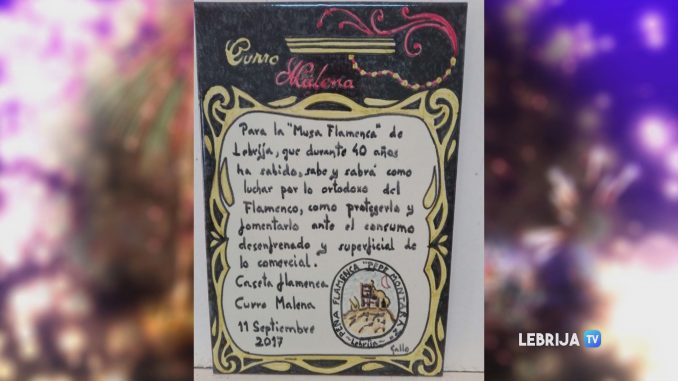 Curro
Malena
Para la "Musa Flamenca" de
Lebrija, que durante 40 años
ha sabido, sabe y sabrá como
luchar por lo ortodoxo del
Flamenco, como protegerlo y
fomentarlo ante el consumo
desenfrenado y superficial de
lo comercial.
Caseta flamenca
Curro Malena
11 Septiembre
2017
PEÑA FLAMENCA "PEPE MONTARAZ"
Lebrija
Gallo
LEBRIJA TV